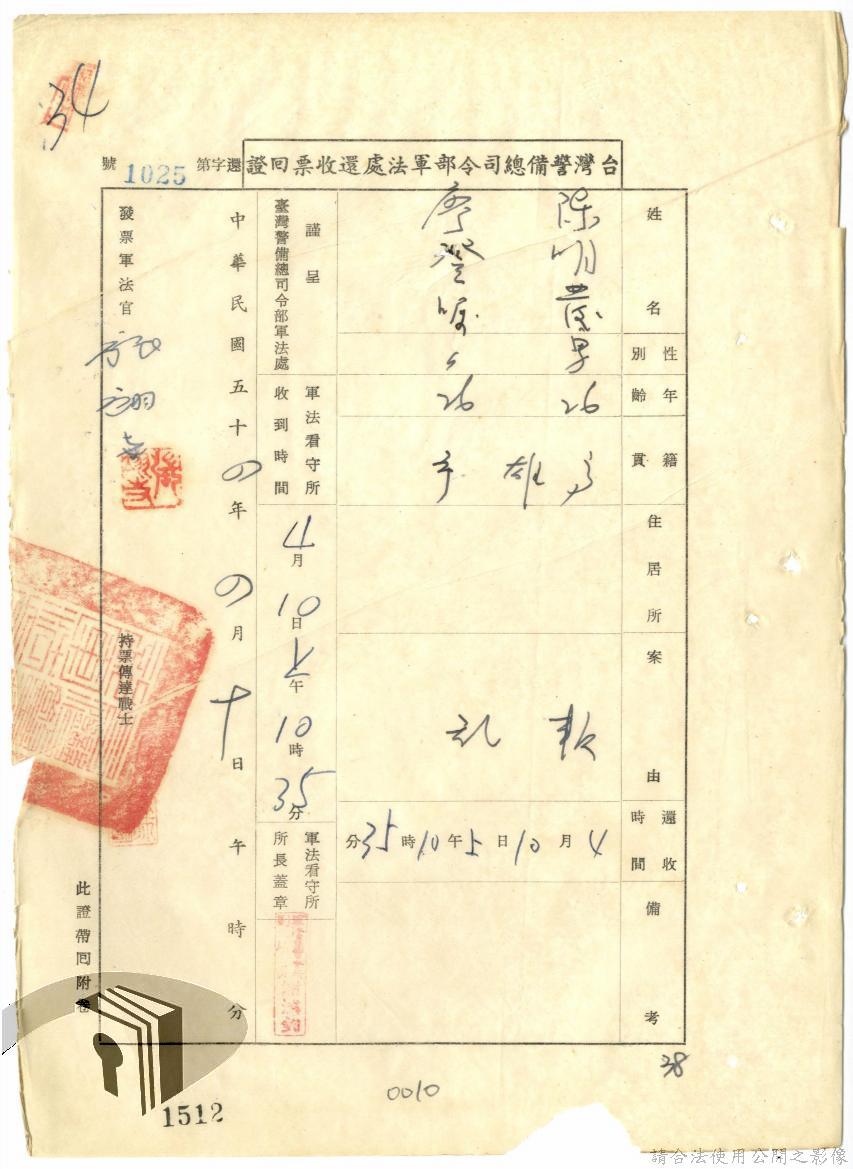 34
台灣警備總司令部軍法處還收票回證
還字第 1025 號
姓名
陳明發
廖登囑
性別
男
〃
年齡
26
26
籍貫
高雄
〃
住居所
案由
叛亂
還收時間
4月10日上午10時35分
備考
謹呈
臺灣警備總司令部軍法處
軍法看守所收到時間
4月10日上午10時35分
軍法看守所所長蓋章
中華民國五十四年四月十日 午 時 分
發票軍法官
持票傳達戰士
此證帶回附卷
38
0010
1512
請合法使用公開之影像